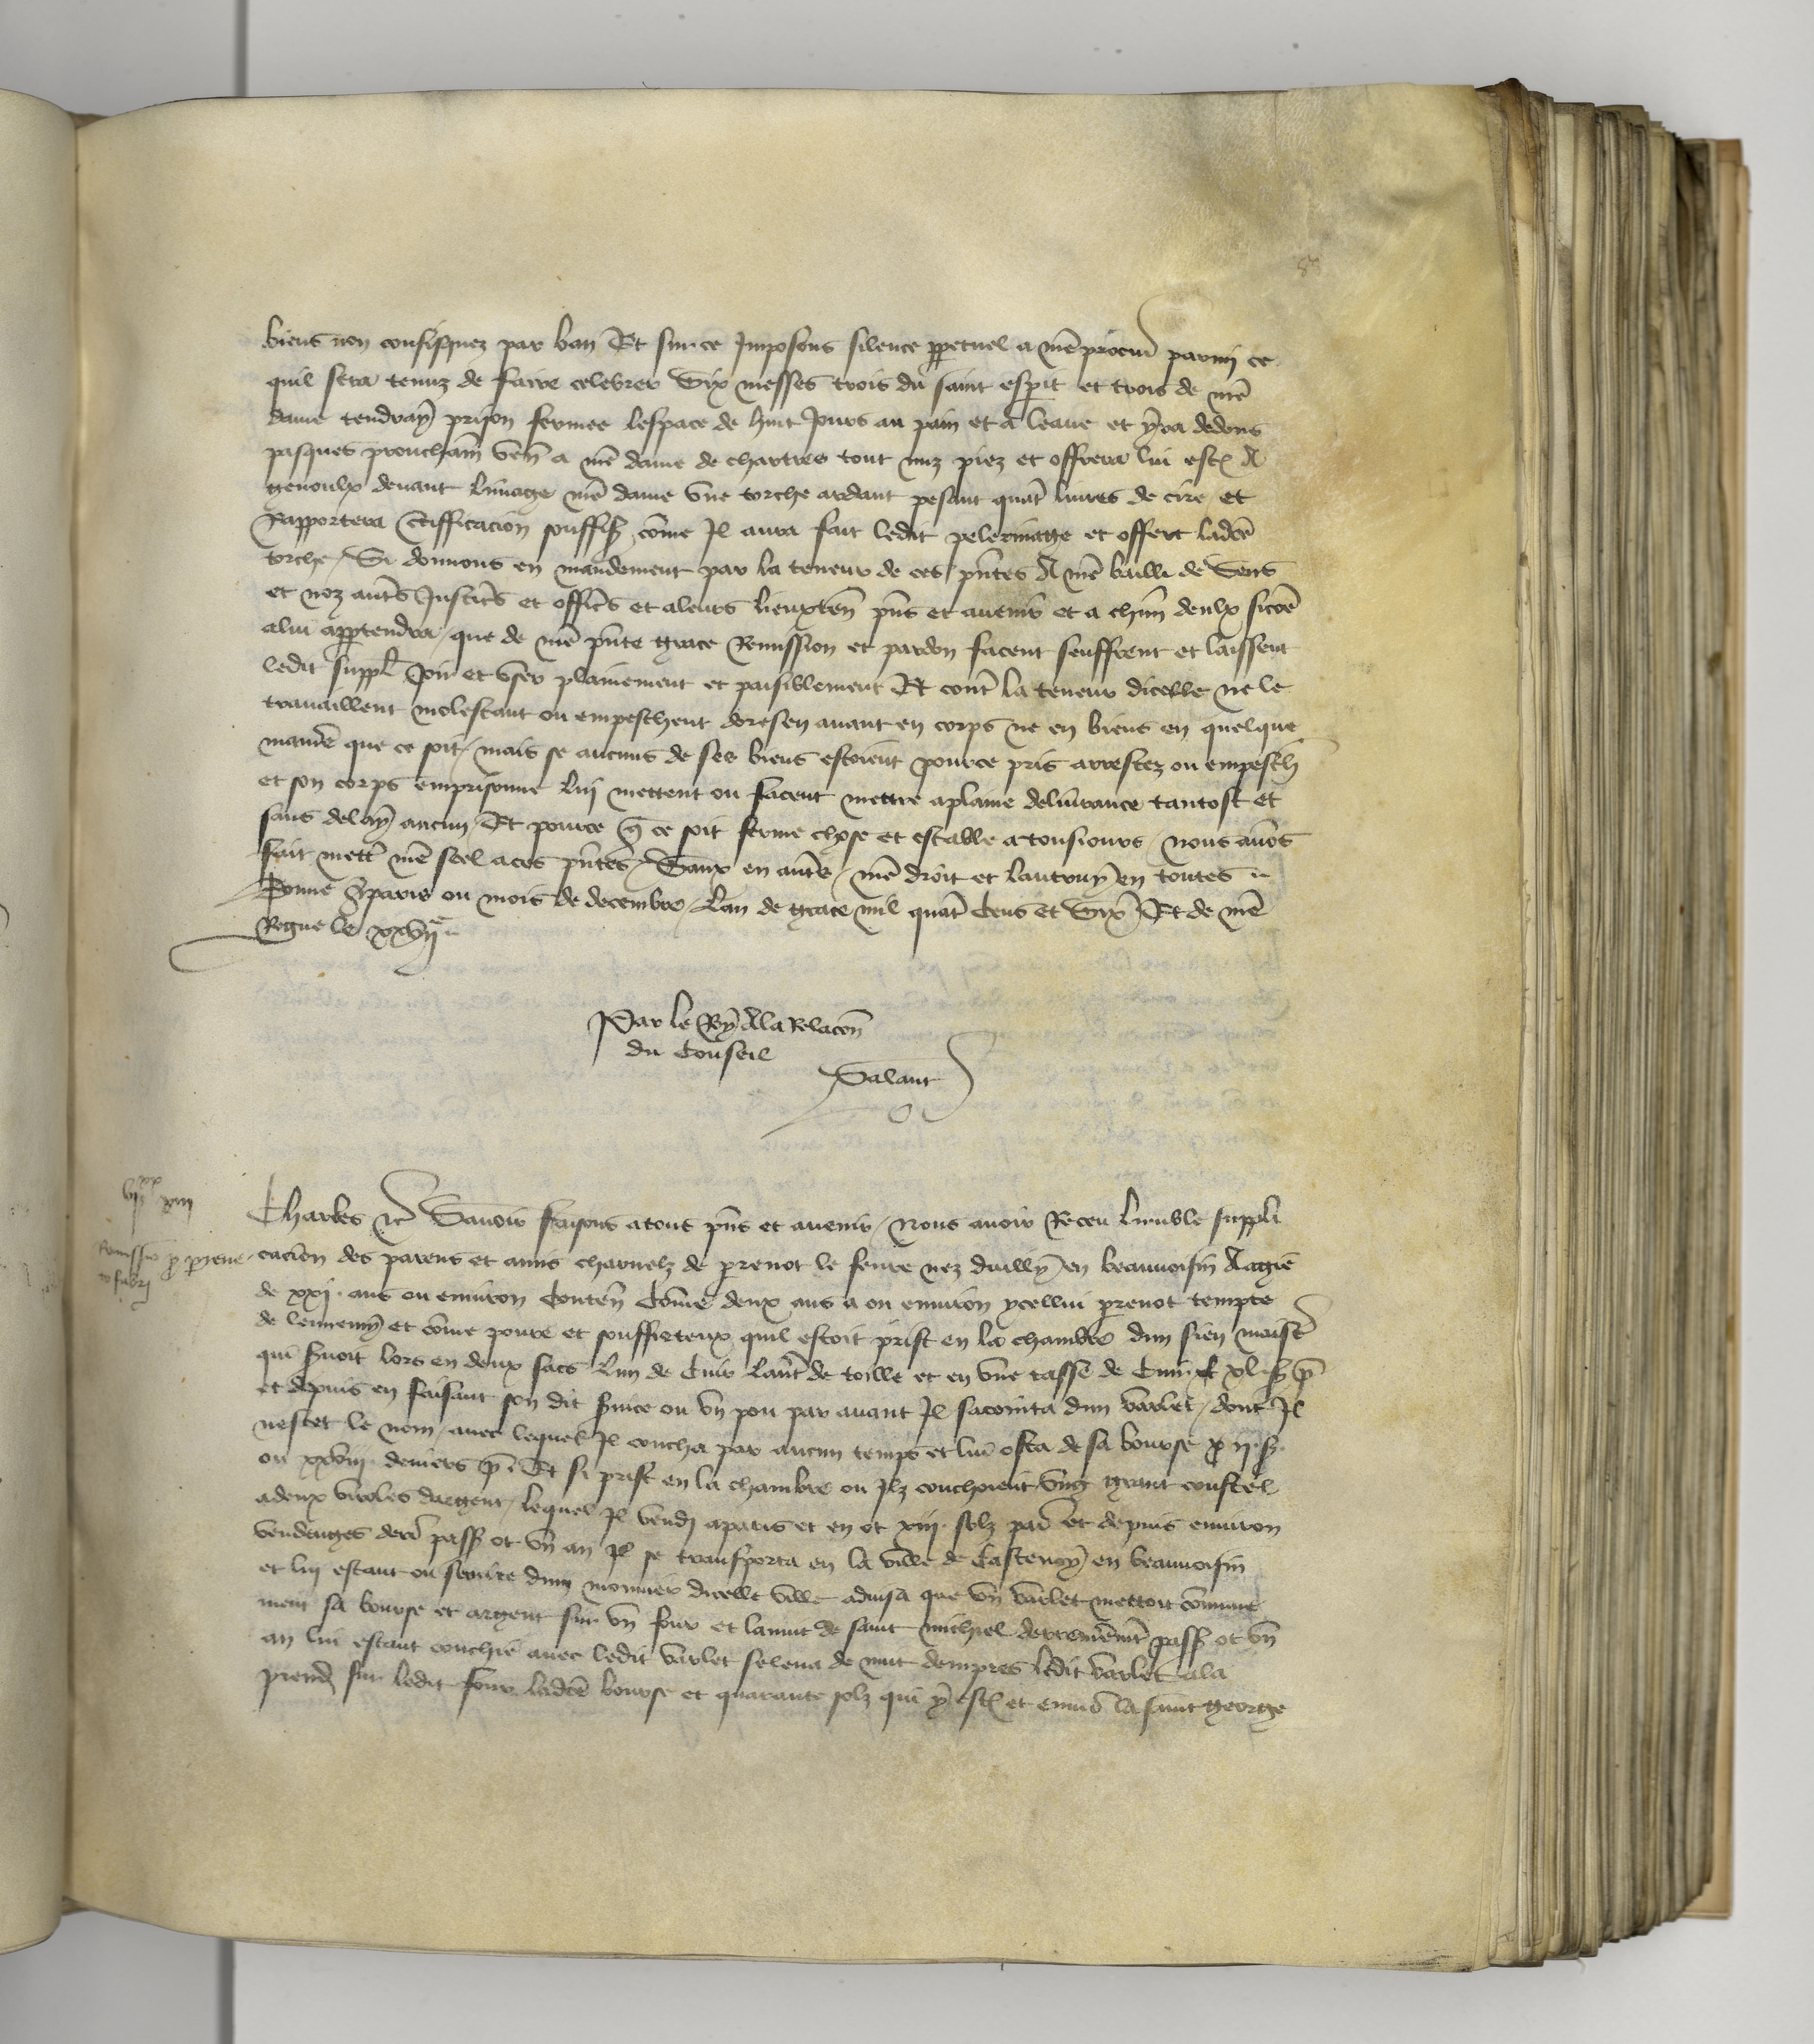 biens non confisquez par ban Et sur ce Imposons silence ppetuel a nre procur parmy ce
quil sera tenuz de faire celebrer Six messes trois du saint esprit et trois de nre
dame tendray prison fermee lespace de huit Jours au pain et a leaue et yra dedens
pasques prouchain ven a nre dame de chartres tout nuz piez et offrera lui est A
genoulx deuant limage nre dame vne torche ardant pesant quat liures de cire et
Rapportera Ctifficacion souffis come Il aura fait ledit pelerinage et offert ladce
torche / Si donnons en mandement par la teneur de ces pntes A nre bailli de Sens
et noz autes Justices et offices et aleurs lieuxten pns et auenir et a chun deulx sicoe
alui apptendra / que de nre pnte grace Remission et pardon facent seuffrent et laissent
ledit suppl Joir et vser plainement et paisiblement Et cont la teneur dicelle ne le
trauaillent molestent ou empeschent doresen auant en corps ne en biens en quelque
maniere que ce soit / mais se aucuns de ses biens estoient pource pris arrestez ou empesch
et son corps emprisonne luy mettent ou facent mettre aplaine deliurance tantost et
sans delay aucun Et pource q ce soit ferme chose et estable atousiours / nous auos
fait mett nre seel aces pntes / Sauf en autre / nre droit et lautruy en toutes
Donne Aparis ou mois de decembre / Lan de grace mil quat Cens et Six Et de nre
Regne le xxvii
Par le Roy Ala Relacon
du Conseil
Salaut
vii xx xiii
Charles etc Sauoir faisons atous pns et auenir / Nous auoir Receu lumble suppli
Remissio p preno
to fabri
cacion des parens et amis charnelz de prenot le feure nez duilly en beauuoisin Aagie
de xxj. ans ou enuiron Conten Come deux ans a ou enuiron ycellui prenot tempte
de lennemy et come poure et souffreteux quil estoit prist en la chambre dun sien maist
qui suoit lors en deux sacs lun de Cuir laut de toille et en vne tasse de Cuir xl s p
et depuis en faisant son dit suice ou vn pou par auant Il sacointa dun varlet / dont Il
nescet le nom / auec lequel Il coucha par aucun temps et lui osta de sa bourse xii s
ou xxviii deniers p Et si prist en la chambre ou Ilz couchoient vng grant coustel
adeux virolles dargent / lequel Il vendi aparis et en ot xiij solz par et depuis enuiron
vendenges derr pass ot vn an Il se transporta en la ville de Castenoy en beauuoisin
et luy estant ou seruice dun monnier dicelle ville aduisa que vn varlet mettoit comune
ment sa bourse et argent sur vn four et lanuit de saint michiel derrenierement pass ot vn
an lui estant couchie auec ledit varlet seleua de nuit dempres ledit varlet ala
prendre sur ledit four ladce bourse et quarante solz qui y est et enuiro la saint george